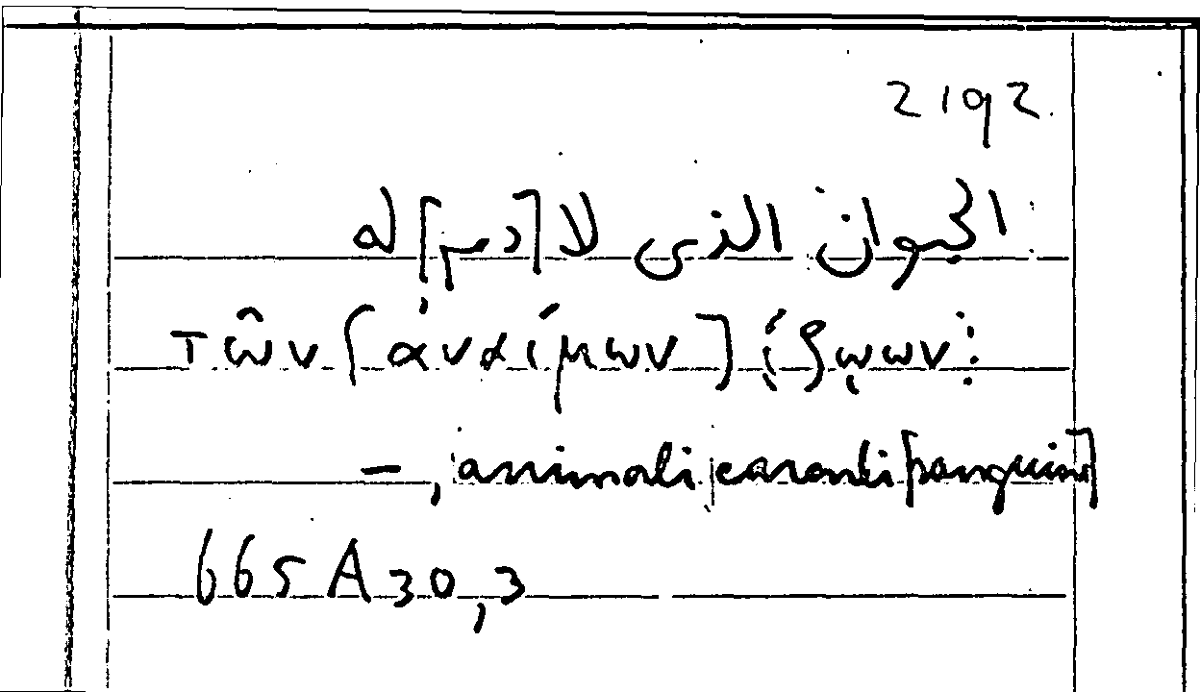 2192.
الحيوان الذى لا [دم] له
τῶν [ἀναίμων] ⁝ ζῴων ⁝
–, animali carenti [sanguine]
665 A 30,3